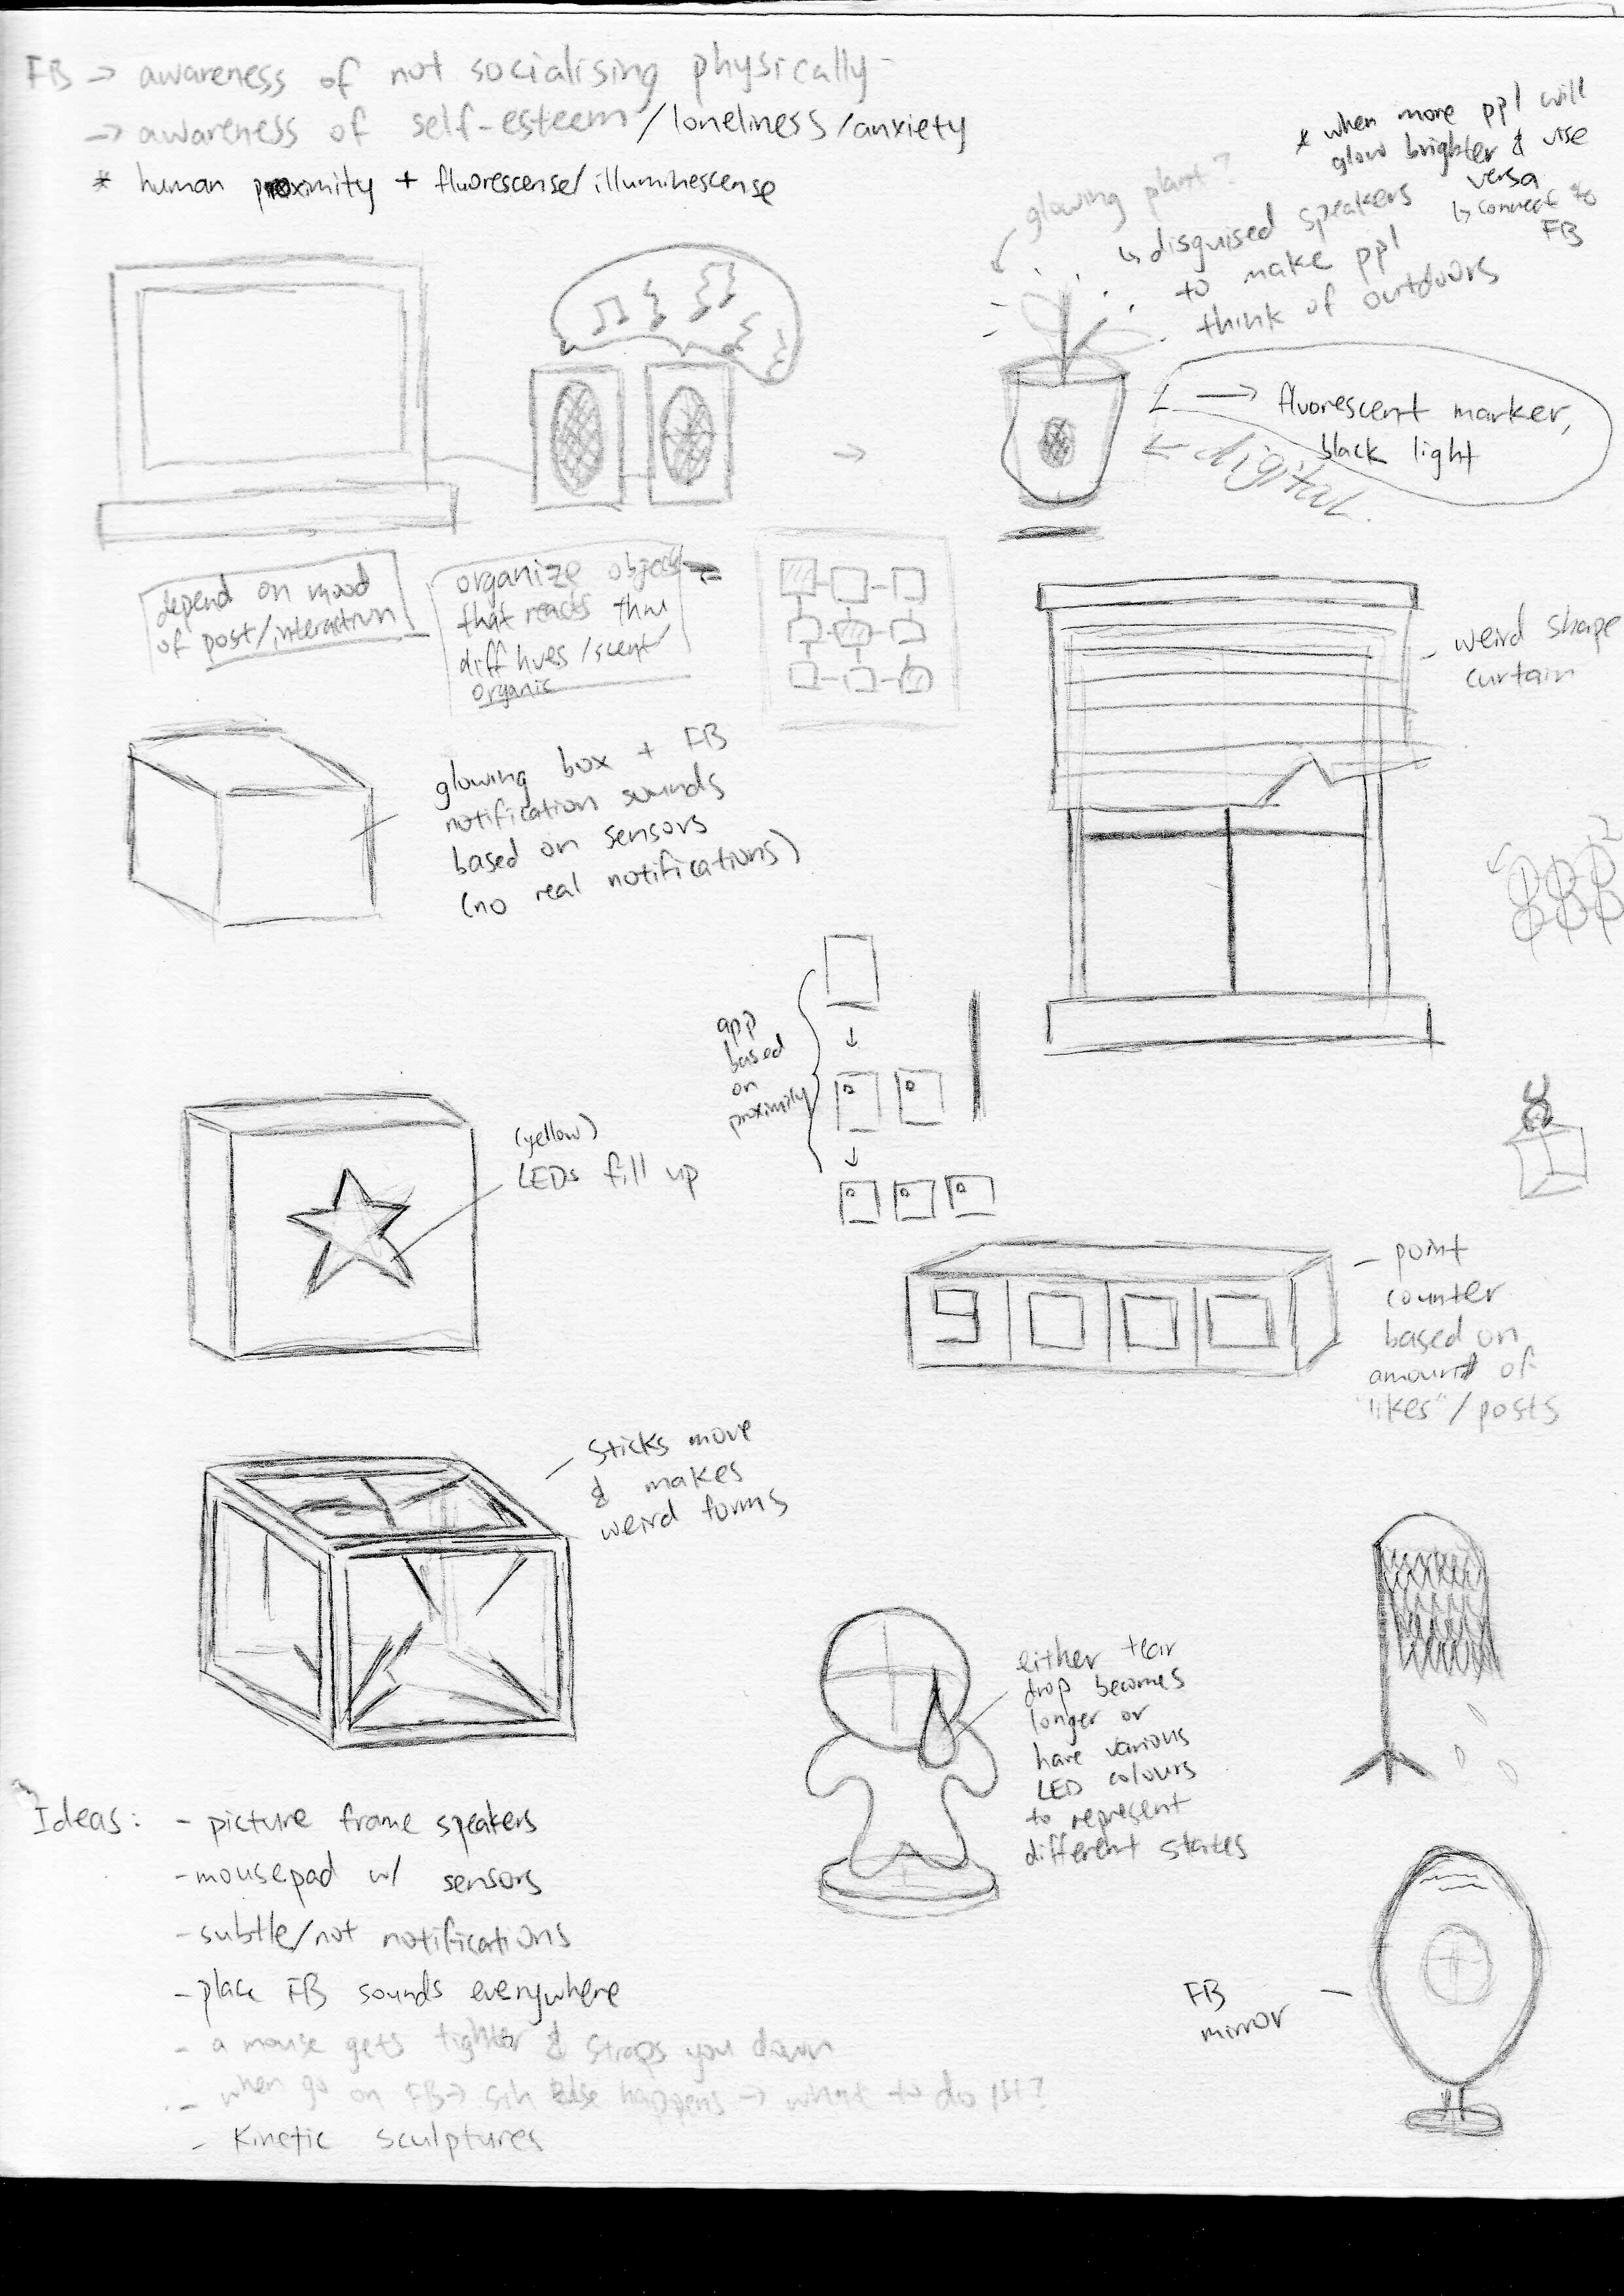 FB → awareness of not socialising physically
→ awareness of self-esteem/loneliness/anxiety
* human proximity + fluorescense/illuminescense
* when more ppl will
glow brighter & vise
versa
↳ connect to
FB
glowing plant?
↳ disguised speakers
to make ppl
think of outdoors
→ fluorescent marker,
black light
← digital
depend on mood
of post/interaction
organize objects
that reacts thru
diff hues/scent/
organic
weird shape
curtain
glowing box + FB
notification sounds
based on sensors
(no real notifications)
app
based
on
proximity
(yellow)
LEDs fill up
9000
- point
counter
based on
amount of
"likes"/posts
sticks move
& makes
weird forms
either tear
drop becomes
longer or
have various
LED colours
to represent
different states
Ideas: - picture frame speakers
- mousepad w/ sensors
- subtle/not notifications
- place FB sounds everywhere
- a mouse gets tighter & straps you down
- when go on FB → sth else happens → what to do 1st?
- Kinetic sculptures
FB
mirror